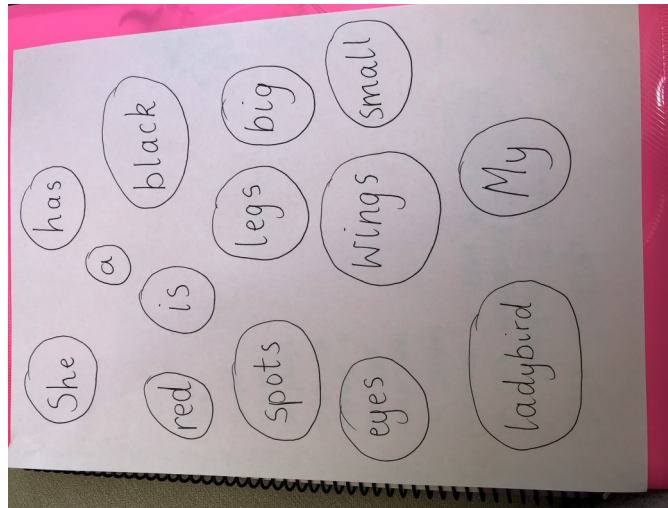 She has
a
red is black
spots legs big
eyes wings small
ladybird My